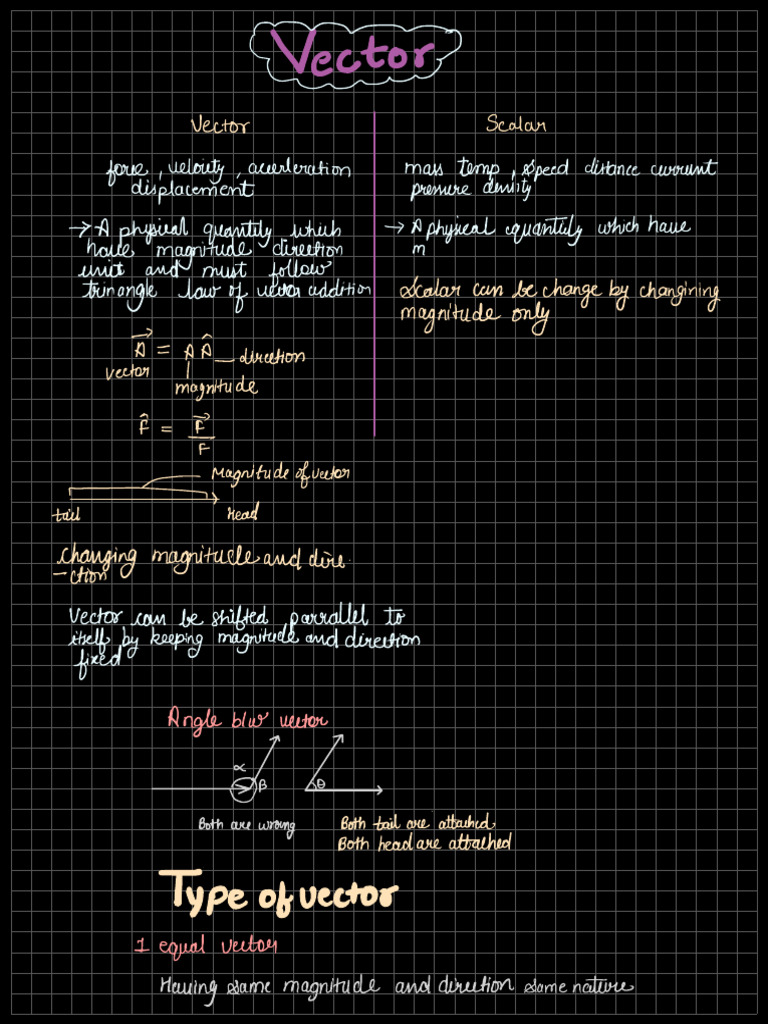 Vector
Vector
force, velocity, accerleration
displacement
→ A physical quantity which
have magnitude direction
unit and must follow
trinangle law of vector addition
Scalar
mass temp, speed distance current
pressure density
→ A physical quantity which have
m
Scalar can be change by changining
magnitude only
A⃗ = A Â
vector
direction
magnitude
F̂ = F⃗
F
Magnitude of vector
tail
Head
Changing magnitude and dire
-ction
Vector can be shifted parrallel to
itself by keeping magnitude and direction
fixed
Angle b/w vector
α
β
θ
Both are wrong
Both tail are attached
Both head are attached
Type of vector
1 equal vector
Having same magnitude and direction same nature